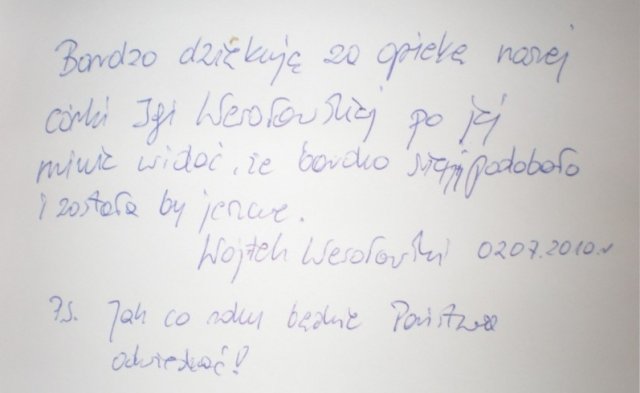 Bardzo dziękuję za opiekę naszej
córki Igi Wesołowskiej po jej
minie widać, że bardzo się jej podobało
i została by jeszcze.
Wojtek Wesołowski 02.07.2010 r
PS. Jak co roku będzie Państwa
odwiedzać!